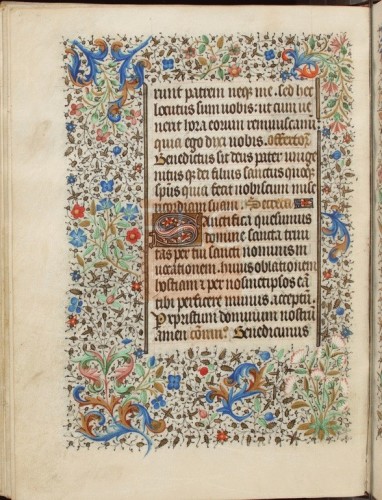 runt patrem neq; me. sed hec
locutus sum uobis: ut cum ue
nerit hora eorum reminiscami
quia ego dixi uobis. offertor
Benedictus sit deus pater unige
nitus q; dei filius sanctus quoq;
sp̄us quia fecit nobiscum mise
ricordiam suam. Secreta
Sanctifica quesumus
domine sancta trini
tas per tui sancti nominis in
uocationem. huius oblationem
hostiam et per
tibi perficere munus. acceptū.
Per xpristum dominum nostrū
amen cōmū. Benedicimus